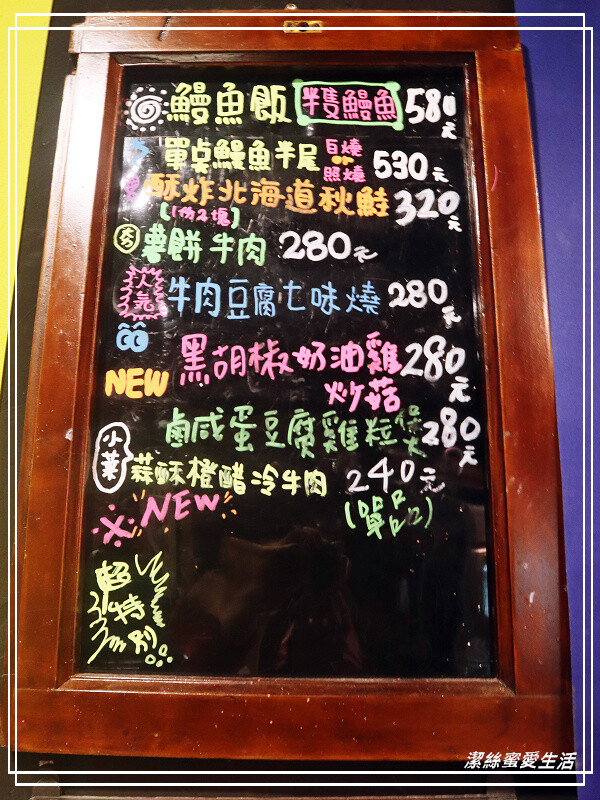 鰻魚飯 半隻鰻魚 580元
單点鰻魚半尾 白燒or照燒 530元
酥炸北海道秋鮭 320元
【1份2塊】
薯餅牛肉 280元
人氣 牛肉豆腐七味燒 280元
NEW 黑胡椒奶油雞炒菇 280元
鹹蛋豆腐雞粒煲 280元
小菜 蒜酥橙醋冷牛肉 240元
NEW (單品)
超特別
潔絲蜜愛生活